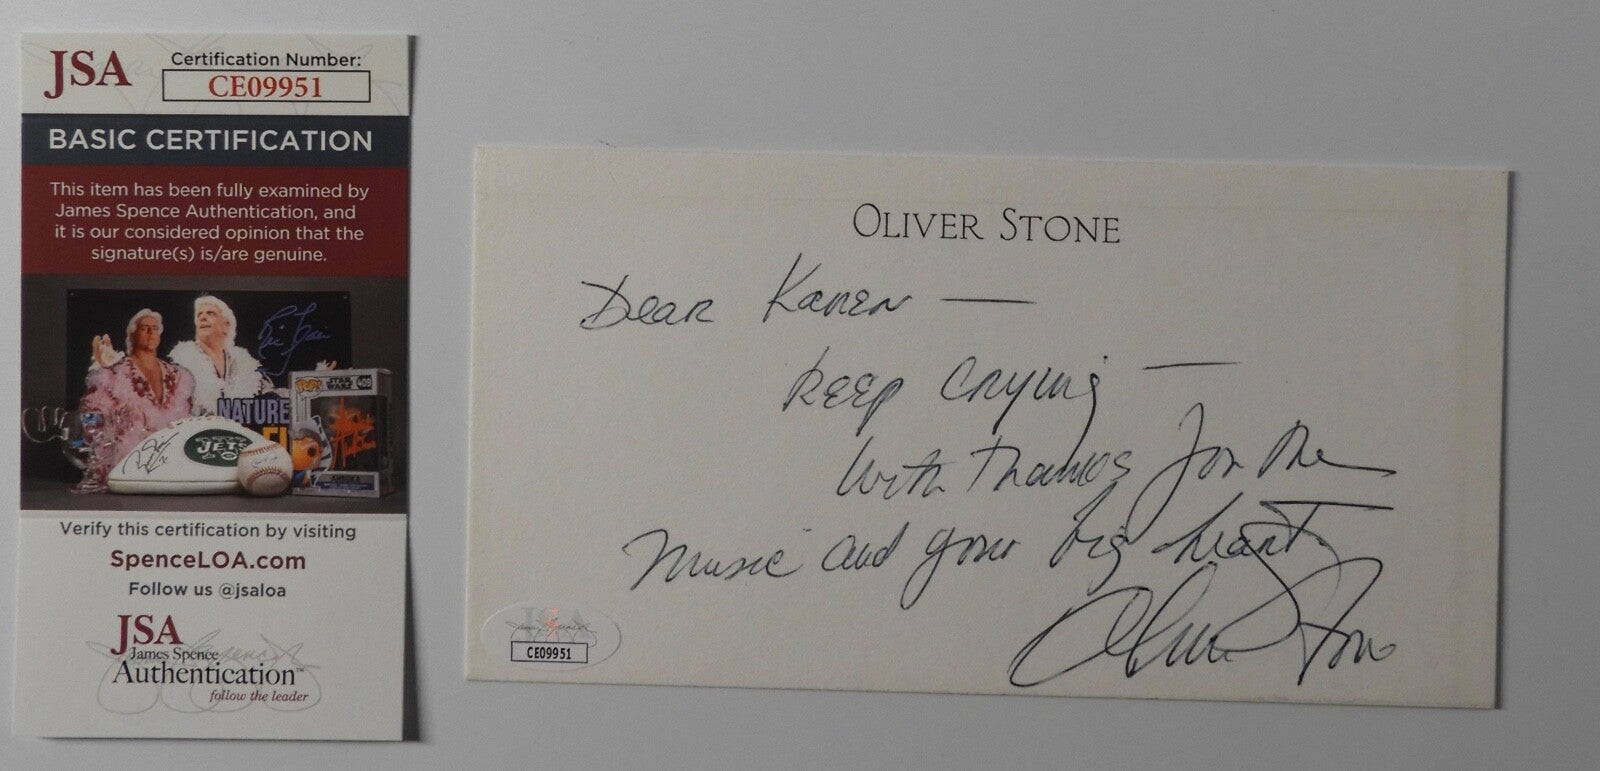 JSA
Certification Number:
CE09951
BASIC CERTIFICATION
This item has been fully examined by
James Spence Authentication, and
it is our considered opinion that the
signature(s) is/are genuine.
NATURE
JETS
POP!
STAR WARS
409
Verify this certification by visiting
SpenceLOA.com
Follow us @jsaloa
JSA
James Spence
Authentication™
follow the leader
OLIVER STONE
Dear Karen —
Keep crying —
with thanks for the
music and your big heart.
Oliver Stone
JSA
CE09951